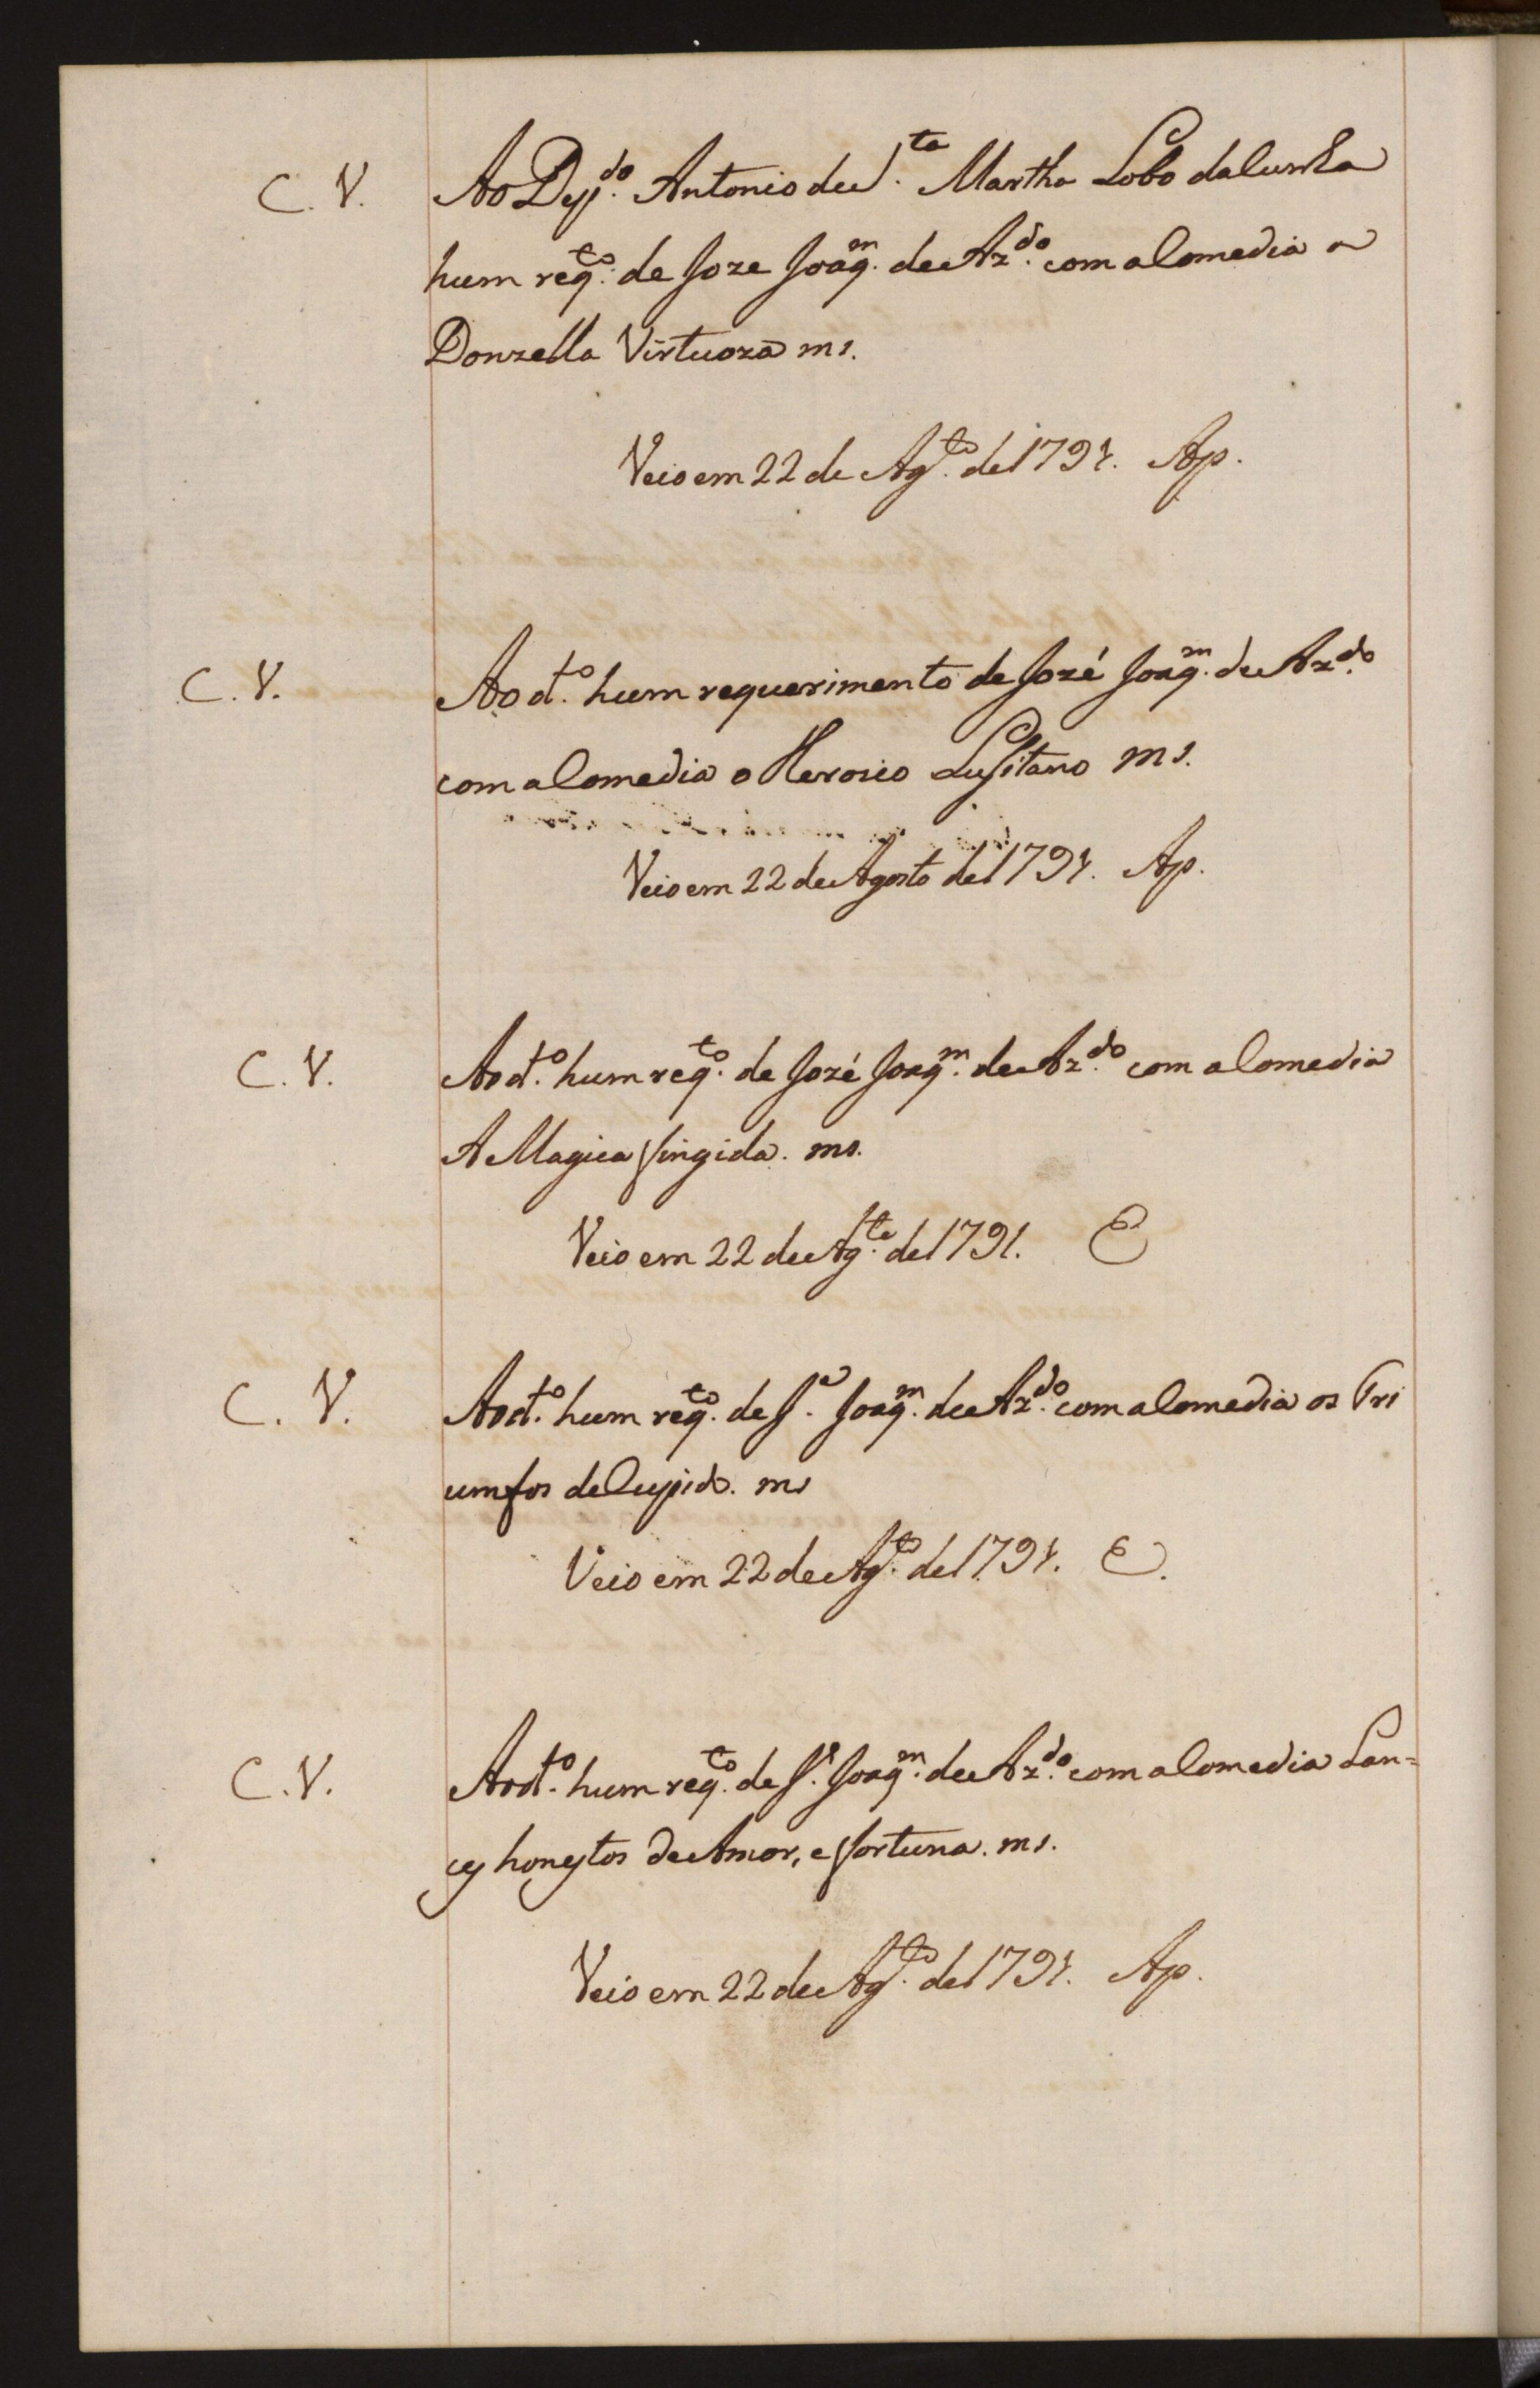 C. V. Ao Dep.do Antonio de S.ta Martha Lobo da Cunha
hum reqto. de Joze Joaqm. de Azdo. com a Comedia a
Donzella Virtuoza ms.
Veio em 22 de Agto. de 1791. Ap.
C. V. Ao dto. hum requerimento de Jozé Joaqm. de Azdo.
com a Comedia o Heroico Lusitano ms.
Veio em 22 de Agosto de 1791. Ap.
C. V. Ao dto. hum reqto. de Jozé Joaqm. de Azdo. com a Comedia
A Magica fingida. ms.
Veio em 22 de Agto. de 1791. E
C. V. Ao dto. hum reqto. de Je. Joaqm. de Azdo. com a Comedia os Tri
umfos de Cupido. ms
Veio em 22 de Agto. de 1791. E.
C. V. Ao dto. hum reqto. de Je. Joaqm. de Azdo. com a Comedia Lan=
ces honestos de Amor, e fortuna. ms.
Veio em 22 de Agto. de 1791. Ap.